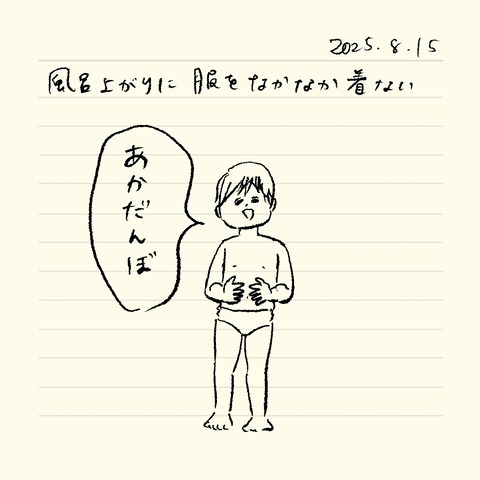 2025.8.15
風呂上がりに 服を なかなか 着ない
あかだんぼ